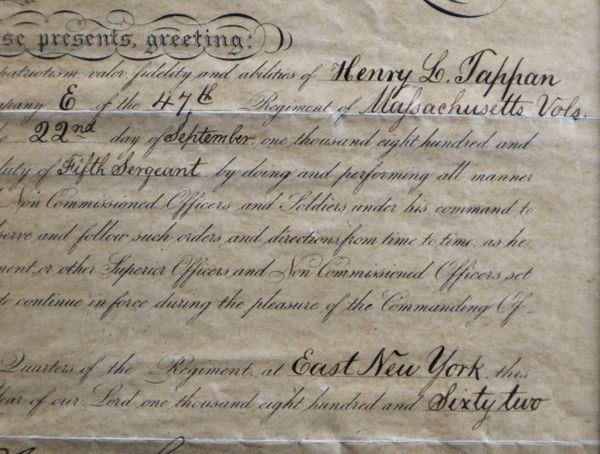 se presents, greeting:
patriotism, valor, fidelity and abilities of Henry L. Tappan
mpany E of the 47th Regiment of Massachusetts Vols.
22nd day of September, one thousand eight hundred and
duty of Fifth Sergeant by doing and performing all manner
Non Commissioned Officers and Soldiers under his command to
serve and follow such orders and directions from time to time, as he
ment, or other Superior Officers and Non Commissioned Officers set
to continue in force during the pleasure of the Commanding Of-
Quarters of the Regiment, at East New York this
Year of our Lord one thousand eight hundred and Sixty two